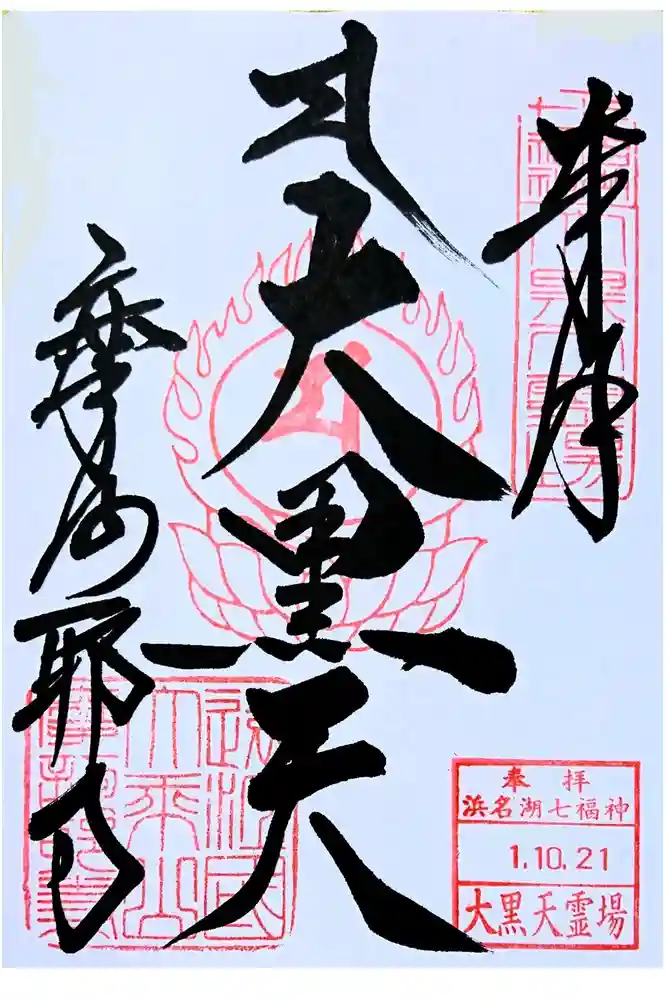 奉拝
大黒天
摩訶耶寺
奉拝
浜名湖七福神
1.10.21
大黒天霊場